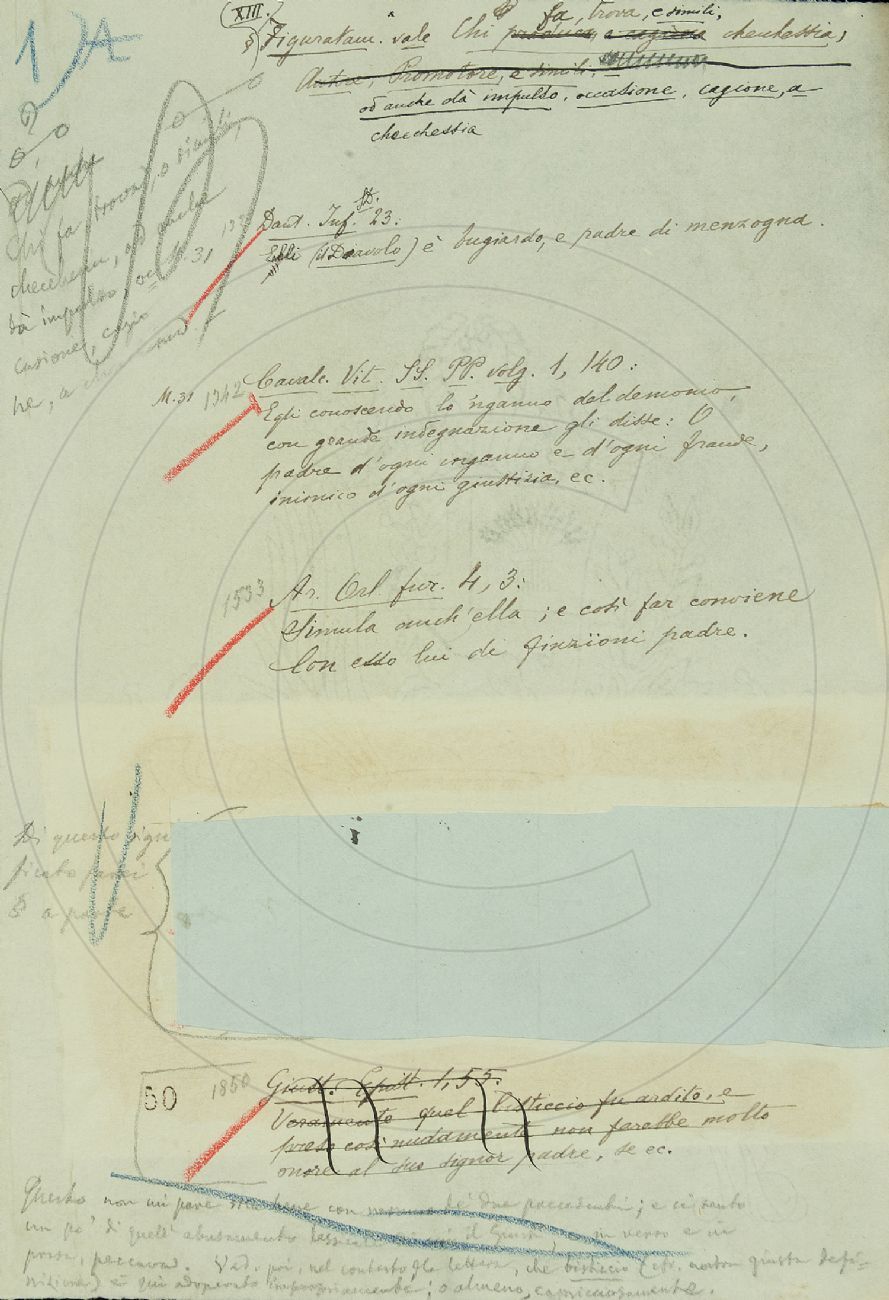 XIII.
fa, trova, e simili,
§ Figuratam. vale Chi produce, o cagiona checchessia;
Autore, Promotore, e simili.
od anche dà impulso, occasione, cagione, a
checchessia
Chi fa, trova, o simili,
checchessia, od anche
dà impulso, oc
casione, cagio
ne, a
Dant. Inf. 23:
Egli (il Diavolo) è bugiardo, e padre di menzogna.
M. 31 1342 Cavalc. Vit. SS. PP. volg. 1, 140:
Egli conoscendo lo 'nganno del demonio,
con grande indegnazione gli disse: O
padre d'ogni inganno e d'ogni fraude,
inimico d'ogni giustizia, ec.
1533 Ar. Orl. fur. 4, 3:
Simula anch'ella; e così far conviene
Con esso lui di finzïoni padre.
Di questo signi
ficato farei
§ a parte
60 1850 Giust. Epist. 1, 55:
Veramente quel bisticcio fu ardito, e
preso così nudamente non farebbe molto
onore al suo signor padre, se ec.
Questo non mi pare stia bene con de' due precedenti; e ci sento
un po' di quell' abusamento il Giusti, in verso e in
prosa, peccava. Ved. poi, nel contesto della lettera, che bisticcio (cfr. nostra giusta defi-
nizione) è qui adoperato impropriamente; o almeno, capricciosamente.